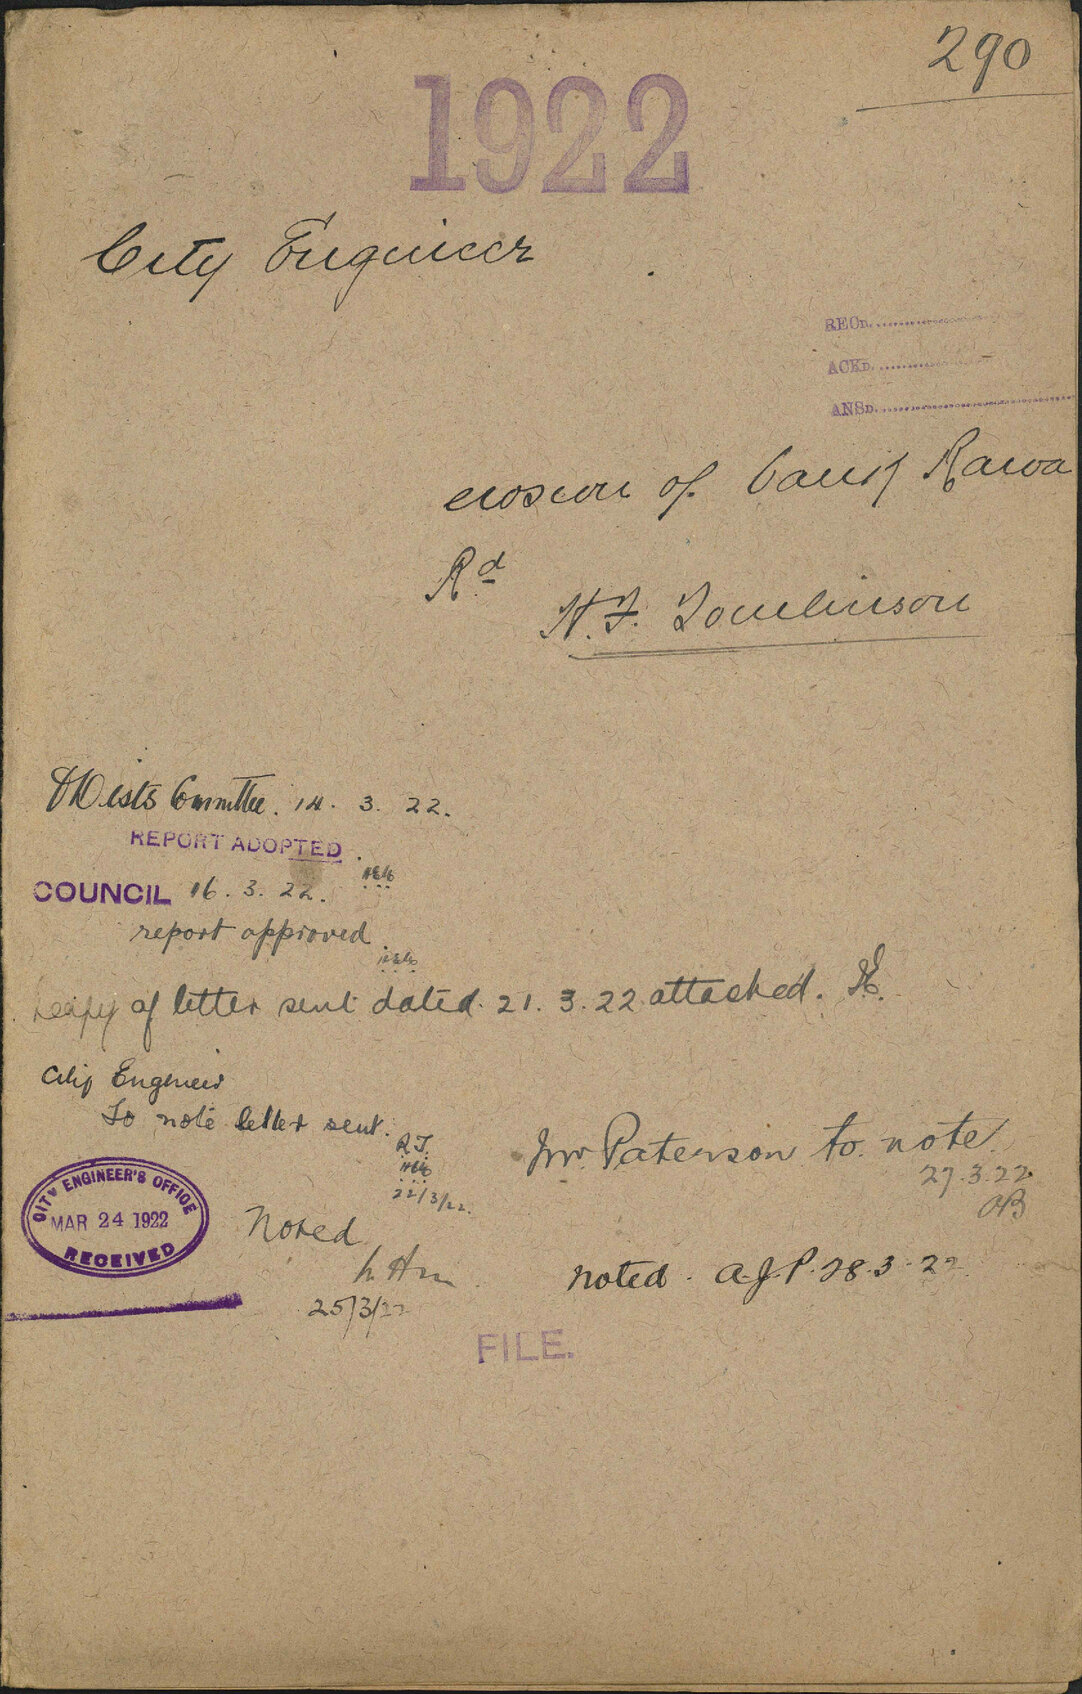 290
1922
City Engineer
RECD.
ACKD.
ANSD.
erosion of bank Rawa
Rd
H.F. Tomlinson
Committee. 14. 3. 22.
REPORT ADOPTED
COUNCIL 16. 3. 22.
report approved
copy of letter sent dated 21. 3. 22 attached.
City Engineer
To note letter sent.
22/3/22.
CITY ENGINEER'S OFFICE
MAR 24 1922
RECEIVED
Noted
25/3/22
Mr. Paterson to note
27.3.22
noted. A.J.P. 28.3.22
FILE.